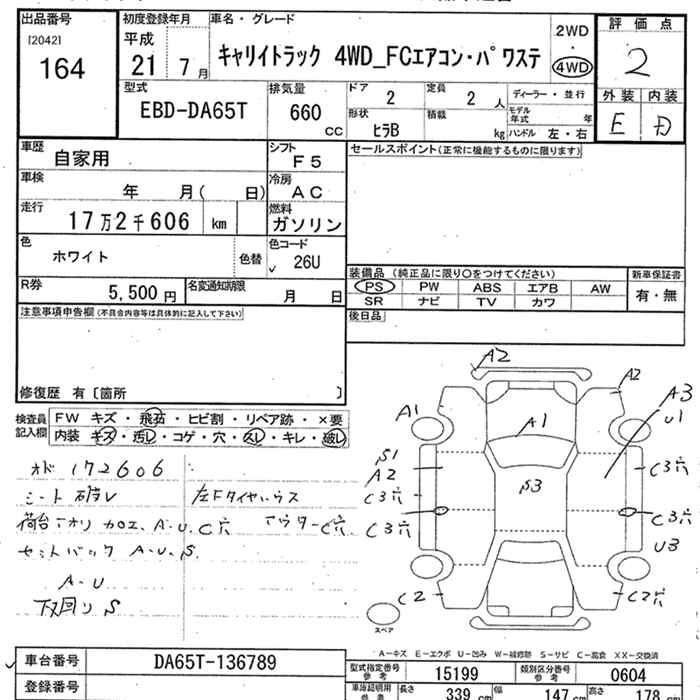 出品番号
[2042]
164
初度登録年月
平成
21 7 月
車名・グレード
キャリイトラック 4WD_FCエアコン・パワステ
2WD
・
4WD
評価点
2
外装 内装
E D
型式
EBD-DA65T
排気量
660
CC
ドア
2
定員
2 人
形状
ヒラB
積載
kg
ディーラー・並行
モデル年式 年
ハンドル 左・右
車歴
自家用
シフト
F5
セールスポイント(正常に機能するものに限ります)
車検
年 月( 日)
冷房
AC
走行
17万2千606 km
燃料
ガソリン
色
ホワイト
色替
色コード
26U
R券
5,500 円
名変通知期限
月 日
装備品 (純正品に限り○をつけてください)
PS PW ABS エアB AW
SR ナビ TV カワ
新車保証書
有・無
後日品
注意事項申告欄(不具合内容等は具体的に記入して下さい)
修復歴 有〔箇所 〕
検査員記入欄
FW キズ・飛石・ヒビ割・リペア跡・×要
内装 キズ・汚レ・コゲ・穴・スレ・キレ・破レ
オド 172606
シート破レ
左Fタイヤハウス
荷台アオリ カロエ、A・U、C穴 アウターC穴
セットバック A・U・S
A・U
下回り S
A2
A2
A1
A1
A3
U1
S1
A2
S3
C3穴
C3穴
C3穴
C3穴
U3
C2
C2穴
スペア
A−キズ E−エクボ U−凹み W−補修跡 S−サビ C−腐食 XX−交換済
車台番号
DA65T-136789
登録番号
型式指定番号
参考
15199
類別区分番号
参考
0604
車庫証明用
参考
長さ 339 cm
幅 147 cm
高さ 178 cm